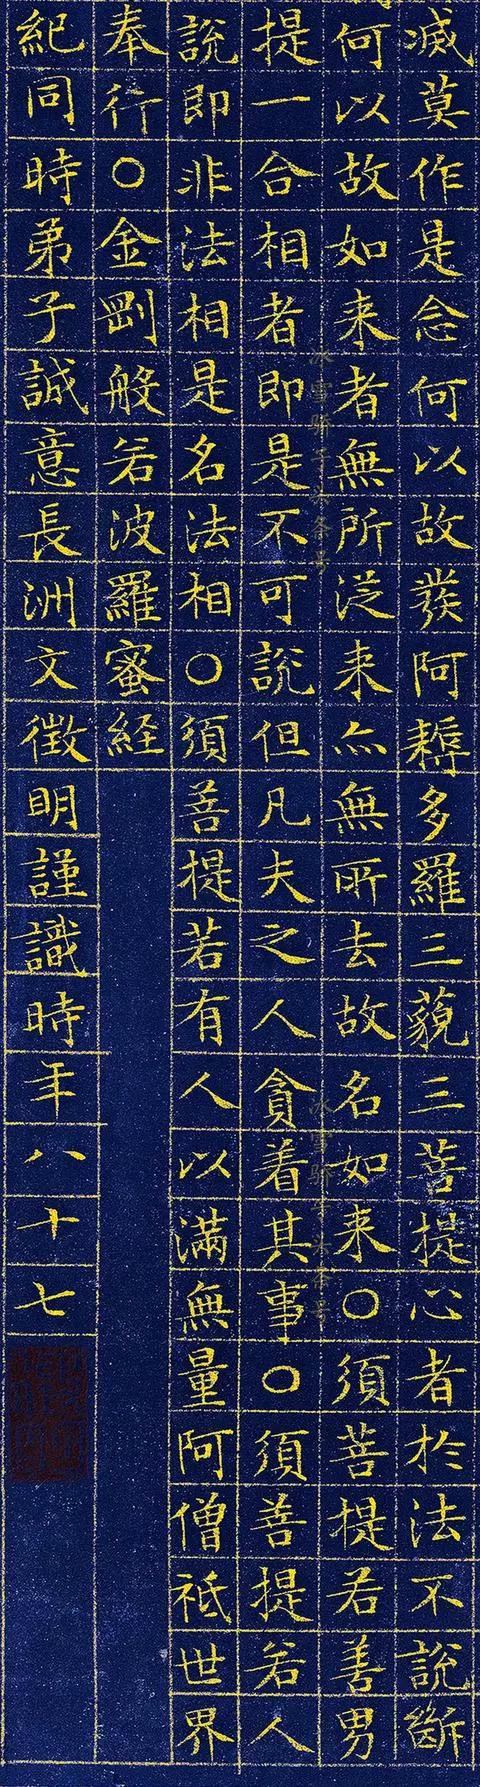 滅莫作是念何以故發阿耨多羅三藐三菩提心者於法不說斷
何以故如来者無所従来亦無所去故名如来〇須菩提若善男
提一合相者即是不可說但凡夫之人貪着其事〇須菩提若人
說即非法相是名法相〇須菩提若有人以滿無量阿僧祇世界
奉行〇金剛般若波羅蜜経
紀同時弟子誠意長洲文徵明謹識時年八十七